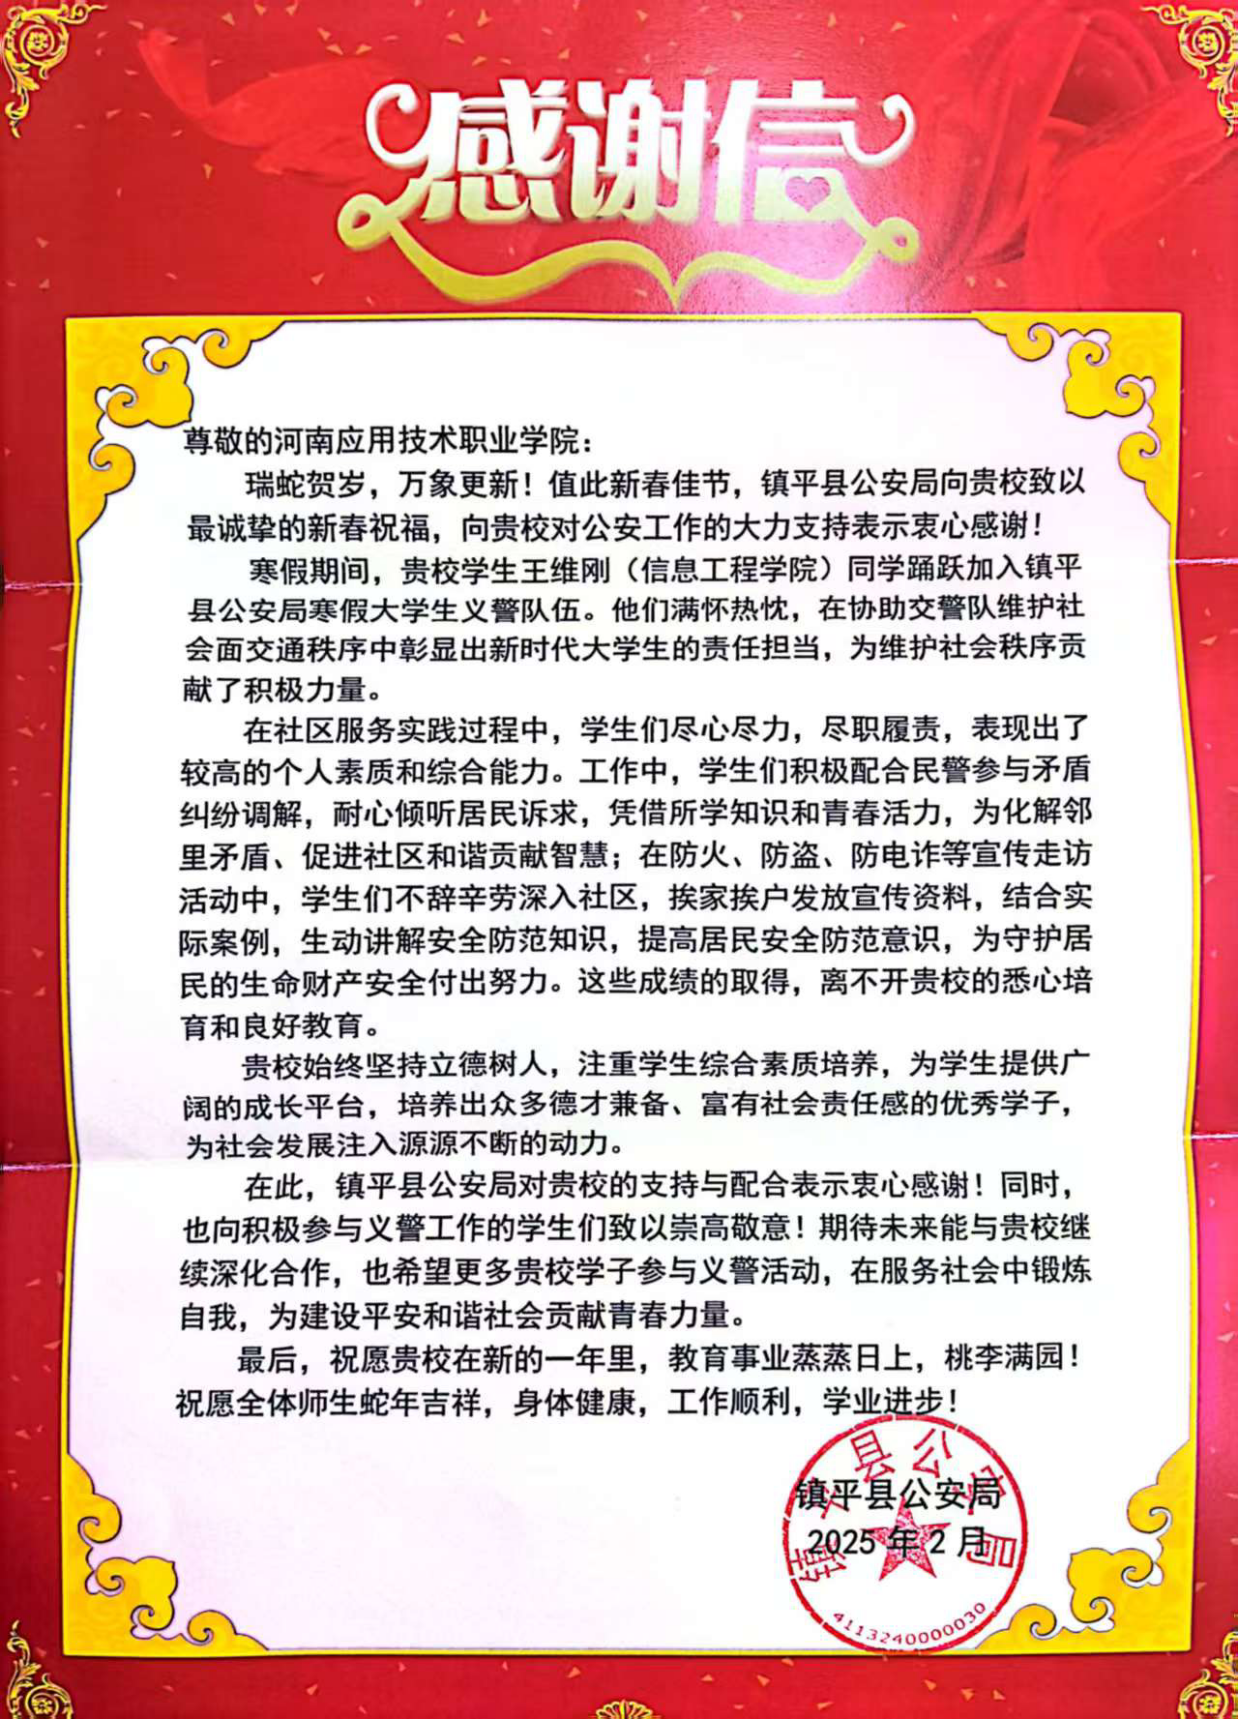 感谢信
尊敬的河南应用技术职业学院：
瑞蛇贺岁，万象更新！值此新春佳节，镇平县公安局向贵校致以
最诚挚的新春祝福，向贵校对公安工作的大力支持表示衷心感谢！
寒假期间，贵校学生王维刚（信息工程学院）同学踊跃加入镇平
县公安局寒假大学生义警队伍。他们满怀热忱，在协助交警队维护社
会面交通秩序中彰显出新时代大学生的责任担当，为维护社会秩序贡
献了积极力量。
在社区服务实践过程中，学生们尽心尽力，尽职履责，表现出了
较高的个人素质和综合能力。工作中，学生们积极配合民警参与矛盾
纠纷调解，耐心倾听居民诉求，凭借所学知识和青春活力，为化解邻
里矛盾、促进社区和谐贡献智慧；在防火、防盗、防电诈等宣传走访
活动中，学生们不辞辛劳深入社区，挨家挨户发放宣传资料，结合实
际案例，生动讲解安全防范知识，提高居民安全防范意识，为守护居
民的生命财产安全付出努力。这些成绩的取得，离不开贵校的悉心培
育和良好教育。
贵校始终坚持立德树人，注重学生综合素质培养，为学生提供广
阔的成长平台，培养出众多德才兼备、富有社会责任感的优秀学子，
为社会发展注入源源不断的动力。
在此，镇平县公安局对贵校的支持与配合表示衷心感谢！同时，
也向积极参与义警工作的学生们致以崇高敬意！期待未来能与贵校继
续深化合作，也希望更多贵校学子参与义警活动，在服务社会中锻炼
自我，为建设平安和谐社会贡献青春力量。
最后，祝愿贵校在新的一年里，教育事业蒸蒸日上，桃李满园！
祝愿全体师生蛇年吉祥，身体健康，工作顺利，学业进步！
镇平县公安局
2025年2月
镇平县公安局
4113240000030